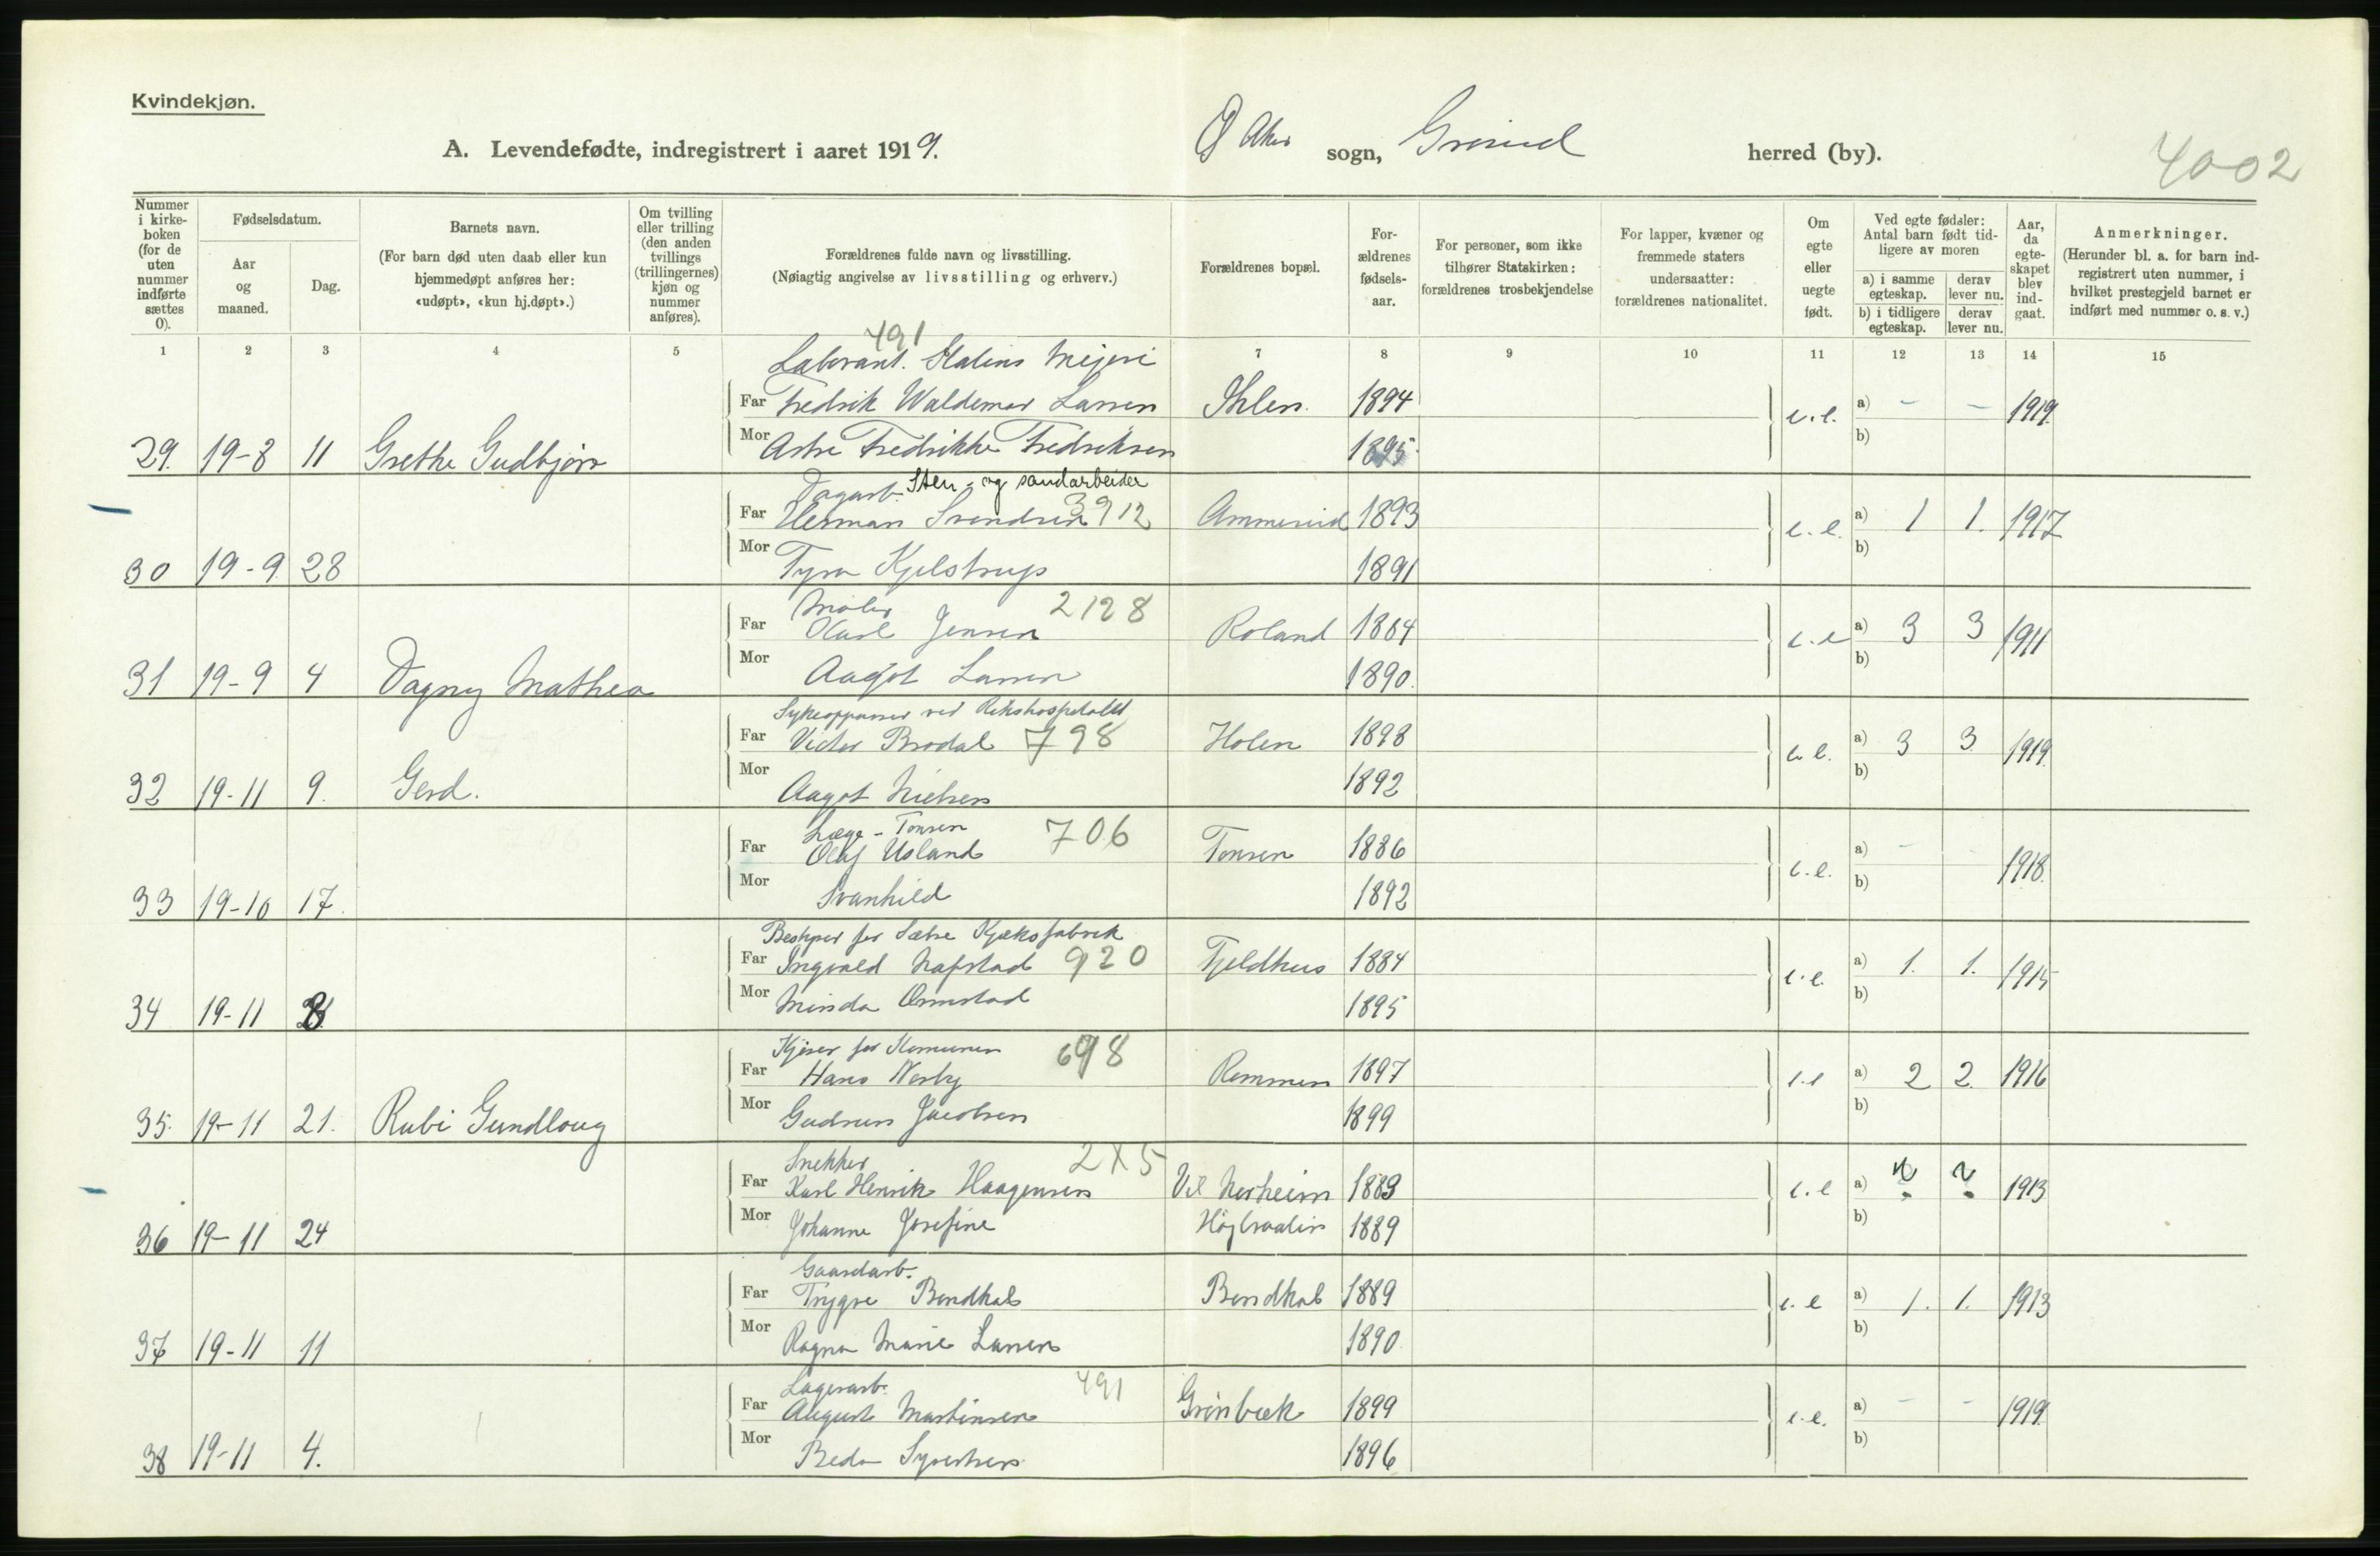 Kvindekjøn.
A. Levendefødte, indregistrert i aaret 1919.
Ø Aker sogn, Grorud herred (by).
4002
Nummer i kirkeboken (for de uten nummer indførte sættes 0).
Fødselsdatum.
Aar og maaned.
Dag.
Barnets navn.
(For barn død uten daab eller kun hjemmedøpt anføres her: «udøpt», «kun hj.døpt».)
Om tvilling eller trilling (den anden tvillings (trillingernes) kjøn og nummer anføres).
Forældrenes fulde navn og livsstilling.
(Nøiagtig angivelse av livsstilling og erhverv.)
Forældrenes bopæl.
Forældrenes fødselsaar.
For personer, som ikke tilhører Statskirken: forældrenes trosbekjendelse
For lapper, kvæner og fremmede staters undersaatter: forældrenes nationalitet.
Om egte eller uegte født.
Ved egte fødsler: Antal barn født tidligere av moren
a) i samme egteskap. derav lever nu.
b) i tidligere egteskap. derav lever nu.
Aar, da egteskapet blev indgaat.
Anmerkninger.
(Herunder bl. a. for barn indregistrert uten nummer, i hvilket prestegjeld barnet er indført med nummer o. s. v.)
1 2 3 4 5 7 8 9 10 11 12 13 14 15
491
Laborant. Meieri
Far Fredrik Waldemar Larsen Ihlen. 1894 e.e. a) - - 1919.
Mor Fredrikke Fredriksen 1895 b)
29. 19-8 11 Grethe Gudbjørn
Dagarb. Sten- og sandarbeider
Far Herman Svendsen 3912 Ammerud 1893 e.e. a) 1 1. 1917
Mor Tyra Kjelstrup 1891 b)
30 19-9 28
Maler 2128
Far Olaf Jensen Roland 1884 e.e a) 3 3 1911
Mor Aagot Larsen 1890. b)
31 19-9 4 Dagny Mathea
Sykeoppasser ved Rikshospitalet
Far Victor Brodal 798 Holen 1898 e.e. a) 3 3 1919.
Mor Aagot Nielsen 1892 b)
32 19-11 9. Gerd.
Læge - Tonsen 706
Far Olaf Usland Tonsen 1886 e.e. a) - - 1918.
Mor Svanhild 1892 b)
33 19-10 17.
Bestyrer for Sætre Kjæksfabrik
Far Ingvald Hafstad 920 Fjeldhus 1884 e.e. a) 1. 1. 1915
Mor Minda Ormstad 1895 b)
34 19-11
Kjører for Komunen 698
Far Hans Nesby Rommen 1897 e.e a) 2 2. 1916
Mor Gudrun Jacobsen 1899 b)
35. 19-11 21. Rubi Gundloug
Snekker 2X5
Far Karl Henrik Haagensen Vil Norheim 1889 e.e a) 2 2 1913
Mor Johanne Josefine Høybraaten 1889 b)
36 19-11 24
Gaardarb.
Far Trygve Bendkal Bendkal 1889 e.e a) 1. 1. 1913
Mor Ragna Marie Larsen 1890. b)
37 19-11 11
Lagerarb. 491
Far August Martinsen Grinbæk 1899 e.e. a) - - 1919.
Mor Beda Syvertsen 1896 b)
38 19-11 4.